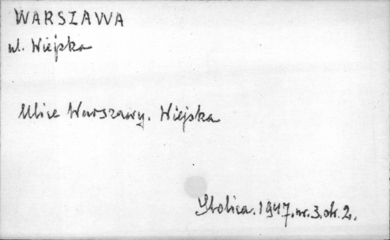 WARSZAWA
ul. Wiejska
Ulice Warszawy. Wiejska
Stolica. 1947. nr. 3. str. 2.